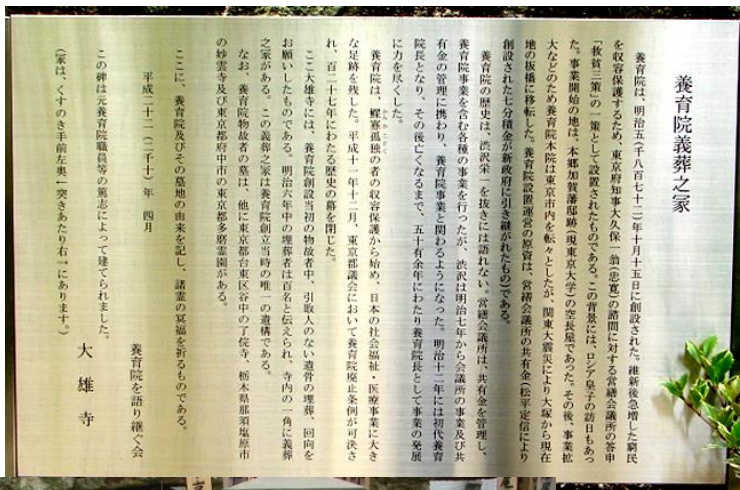 養育院義葬之冢
養育院は、明治五(千八百七十二)年十月十五に創設された。維新後急増した窮民
を収容保護するため、東京府知事大久保一翁(忠寛)の諮問に対する営繕会議所の答申
「救貧三策」の一策として設置されたものである。この背景には、ロシア皇子の訪日もあっ
た。事業開始の地は、本郷加賀藩邸跡(現東京大学)の空長屋であった。その後、事業拡
大などのため養育院本院は東京市内を転々としたが、関東大震災により大塚から現在
地の板橋に移転した。養育院設置運営の原資は、営繕会議所の共有金(松平定信により
創設された七分積金が新政府に引き継がれたもの)である。
養育院の歴史は、渋沢栄一を抜きには語れない。営繕会議所は、共有金を管理し、
養育院事業を含む各種の事業を行ったが、渋沢は明治七年から会議所の事業及び共
有金の管理に携わり、養育院事業と関わるようになった。明治十二年には初代養育
院長となり、その後亡くなるまで、五十有余年にわたり養育院長として事業の発展
に力を尽くした。
養育院は、鰥寡孤独の者の収容保護から始め、日本の社会福祉・医療事業に大き
な足跡を残した。平成十一年十二月、東京都議会において養育院廃止条例が可決さ
れ、百二十七年にわたる歴史の幕を閉じた。
ここ大雄寺には、養育院創設当初の物故者中、引取人のない遺骨の埋葬、回向を
お願いしたものである。明治六年中の埋葬者は百名と伝えられ、寺内の一角に義葬
之冢がある。この義葬之冢は養育院創立当時の唯一の遺構である。
なお、養育院物故者の墓は、他に東京都台東区谷中の了俒寺、栃木県那須塩原市
の妙雲寺及び東京都府中市の東京都多磨霊園がある。
ここに、養育院及びその墓地の由来を記し、諸霊の冥福を祈るものである。
平成二十二(二千十)年 四月
養育院を語り継ぐ会
この碑は元養育院職員等の篤志によって建てられました。
大雄寺
(冢は、くすのき手前左奥↑突きあたり右→にあります。)